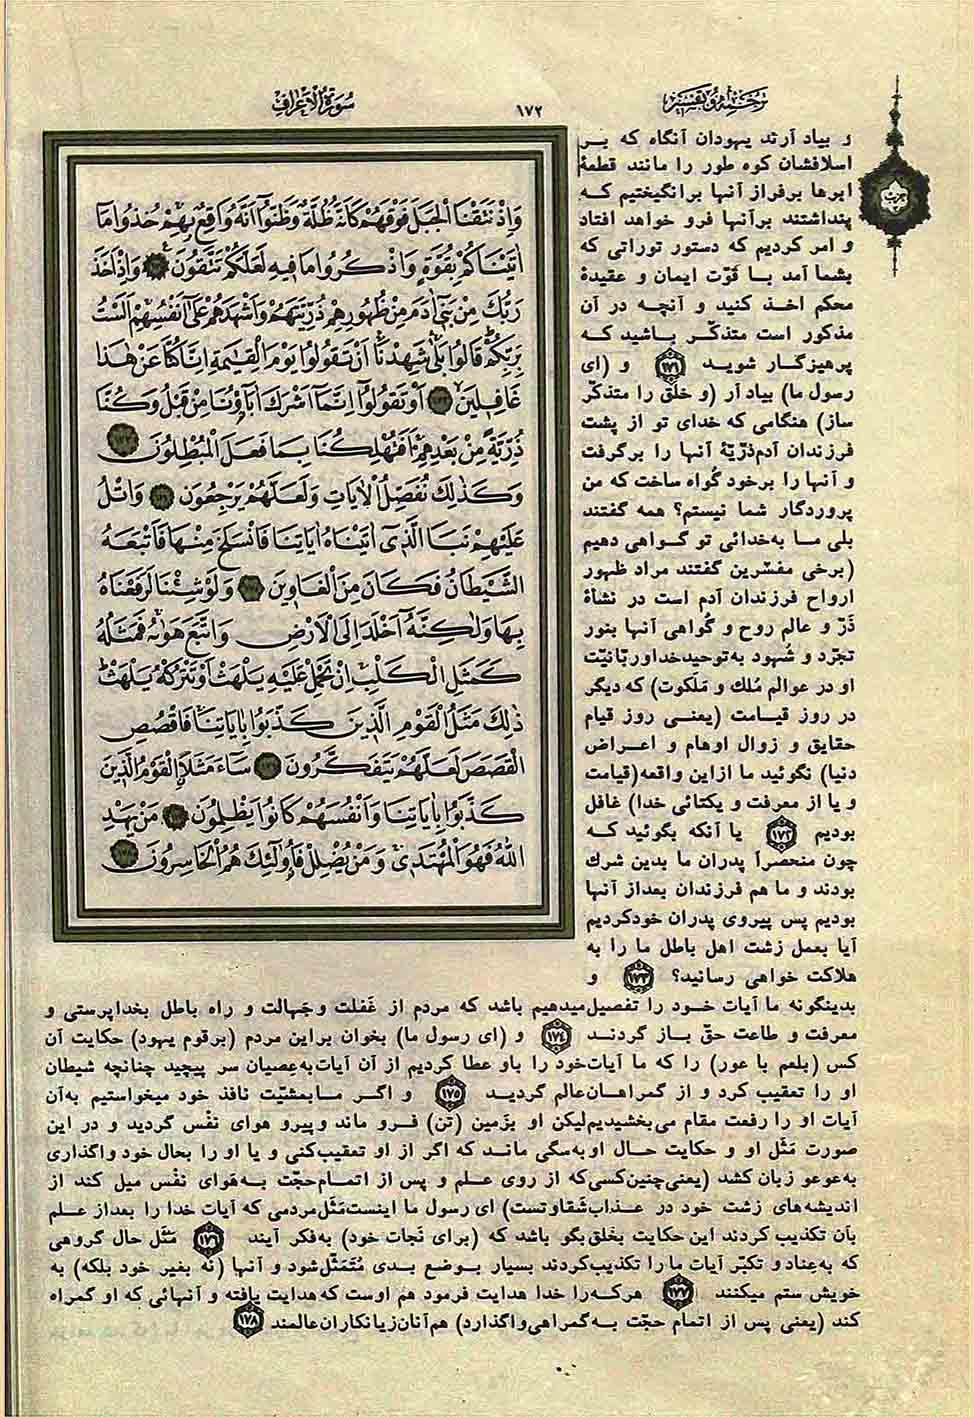 ترجمه و تفسیر
۱۷۲
سورة الاعراف
وَاِذْ نَتَقْنَا الْجَبَلَ فَوْقَهُمْ كَاَنَّهُ ظُلَّةٌ وَظَنُّوٓا اَنَّهُ وَاقِعٌ بِهِمْ خُذُوا مَآ
اٰتَيْنَاكُمْ بِقُوَّةٍ وَاذْكُرُوا مَا فِيهِ لَعَلَّكُمْ تَتَّقُونَ وَاِذْ اَخَذَ
رَبُّكَ مِنْ بَنِٓى اٰدَمَ مِنْ ظُهُورِهِمْ ذُرِّيَّتَهُمْ وَاَشْهَدَهُمْ عَلٰٓى اَنْفُسِهِمْ اَلَسْتُ
بِرَبِّكُمْ قَالُوا بَلٰى شَهِدْنَآ اَنْ تَقُولُوا يَوْمَ الْقِيٰمَةِ اِنَّا كُنَّا عَنْ هٰذَا
غَافِلِينَ ۱۷۲ اَوْ تَقُولُوٓا اِنَّمَآ اَشْرَكَ اٰبَآؤُنَا مِنْ قَبْلُ وَكُنَّا
ذُرِّيَّةً مِنْ بَعْدِهِمْ اَفَتُهْلِكُنَا بِمَا فَعَلَ الْمُبْطِلُونَ ۱۷۳
وَكَذٰلِكَ نُفَصِّلُ الْاٰيَاتِ وَلَعَلَّهُمْ يَرْجِعُونَ وَاتْلُ
عَلَيْهِمْ نَبَاَ الَّذِٓى اٰتَيْنَاهُ اٰيَاتِنَا فَانْسَلَخَ مِنْهَا فَاَتْبَعَهُ
الشَّيْطَانُ فَكَانَ مِنَ الْغَاوِينَ وَلَوْ شِئْنَا لَرَفَعْنَاهُ
بِهَا وَلٰكِنَّهُ اَخْلَدَ اِلَى الْاَرْضِ وَاتَّبَعَ هَوٰيهُ فَمَثَلُهُ
كَمَثَلِ الْكَلْبِ اِنْ تَحْمِلْ عَلَيْهِ يَلْهَثْ اَوْ تَتْرُكْهُ يَلْهَثْ
ذٰلِكَ مَثَلُ الْقَوْمِ الَّذِينَ كَذَّبُوا بِاٰيَاتِنَا فَاقْصُصِ
الْقَصَصَ لَعَلَّهُمْ يَتَفَكَّرُونَ سَآءَ مَثَلًا الْقَوْمُ الَّذِينَ
كَذَّبُوا بِاٰيَاتِنَا وَاَنْفُسَهُمْ كَانُوا يَظْلِمُونَ مَنْ يَهْدِ
اللّٰهُ فَهُوَ الْمُهْتَدِى وَمَنْ يُضْلِلْ فَاُولٰٓئِكَ هُمُ الْخَاسِرُونَ ۱۷۸
و بیاد آرند یهودان آنگاه که بر
اسلافشان کوه طور را مانند قطعهٔ
ابرها برفراز آنها برانگیختیم که
پنداشتند برآنها فرو خواهد افتاد
و امر کردیم که دستور توراتی که
بشما آمد با قوّت ایمان و عقیدهٔ
محکم اخذ کنید و آنچه در آن
مذکور است متذکّر باشید که
پرهیزگار شوید ۱۷۱ و (ای
رسول ما) بیاد آر (و خلق را متذکّر
ساز) هنگامی که خدای تو از پشت
فرزندان آدم ذرّیّهٔ آنها را برگرفت
و آنها را برخود گُواه ساخت که من
پروردگار شما نیستم؟ همه گفتند
بلی ما به‌خدائی تو گواهی دهیم
(برخی مفسّرین گفتند مراد ظهور
ارواح فرزندان آدم است در نشأهٔ
ذَرّ و عالم روح و گُواهی آنها بنور
تجرّد و شُهود به‌توحیدخداوربّانیّت
او در عوالم مُلك و مَلَکوت) که دیگر
در روز قیامت (یعنی روز قیام
حقایق و زوال اوهام و اعراض
دنیا) نگوئید ما ازاین واقعه(قیامت
و یا از معرفت و یکتائی خدا) غافل
بودیم ۱۷۲ یا آنکه بگوئید که
چون منحصراً پدران ما بدین شرك
بودند و ما هم فرزندان بعداز آنها
بودیم پس پیروی پدران خودکردیم
آیا بعمل زشت اهل باطل ما را به
هلاکت خواهی رسانید؟ ۱۷۳ و
بدینگونه ما آیات خود را تفصیل‌میدهیم باشد که مردم از غَفلت و جهالت و راه باطل بخداپرستی و
معرفت و طاعت حقّ باز گردند ۱۷٤ و (ای رسول ما) بخوان براین مردم (برقوم یهود) حکایت آن
کس (بلعم با عور) را که ما آیات‌خود را باو عطا کردیم از آن آیات‌به‌عصیان سر پیچید چنانچه شیطان
او را تعقیب کرد و از گمراهان‌عالم گردید ۱۷٥ و اگر ما بمشیّت نافذ خود میخواستیم به‌آن
آیات او را رفعت مقام می‌بخشیدیم‌لیکن او بزَمین (تن) فرو ماند و پیرو هوای نفْس گردید و در این
صورت مَثَل او و حکایت حال او به‌سگی ماند که اگر از او تعقیب‌کنی و یا او را بحال خود واگذاری
به‌عوعو زبان کشد (یعنی‌چنین‌کسی‌که از روی علم و پس از اتمام‌حجّت به‌هَوای نفْس میل کند از
اندیشه‌های زشت خود در عذاب‌شقاوتست) ای رسول ما اینست‌مَثَل‌مردمی که آیات خدا را بعداز علم
بآن تکذیب کردند این حکایت بخلق‌بگو باشد که (برای نَجات خود) به‌فکر آیند ۱۷٦ مَثَل حال گروهی
که به‌عِناد و تکبّر آیات ما را تکذیب‌کردند بسیار بوضع بدی مُتَمَثّل‌شود و آنها (نه بغیر خود بلکه) به
خویش ستم میکنند ۱۷۷ هرکه‌را خدا هدایت فرمود هم اوست که‌هدایت یافته و آنهائی که او گمراه
کند (یعنی پس از اتمام حجّت به‌گمراهی‌واگذارد) هم‌آنان‌زیانکاران‌عالمند ۱۷۸